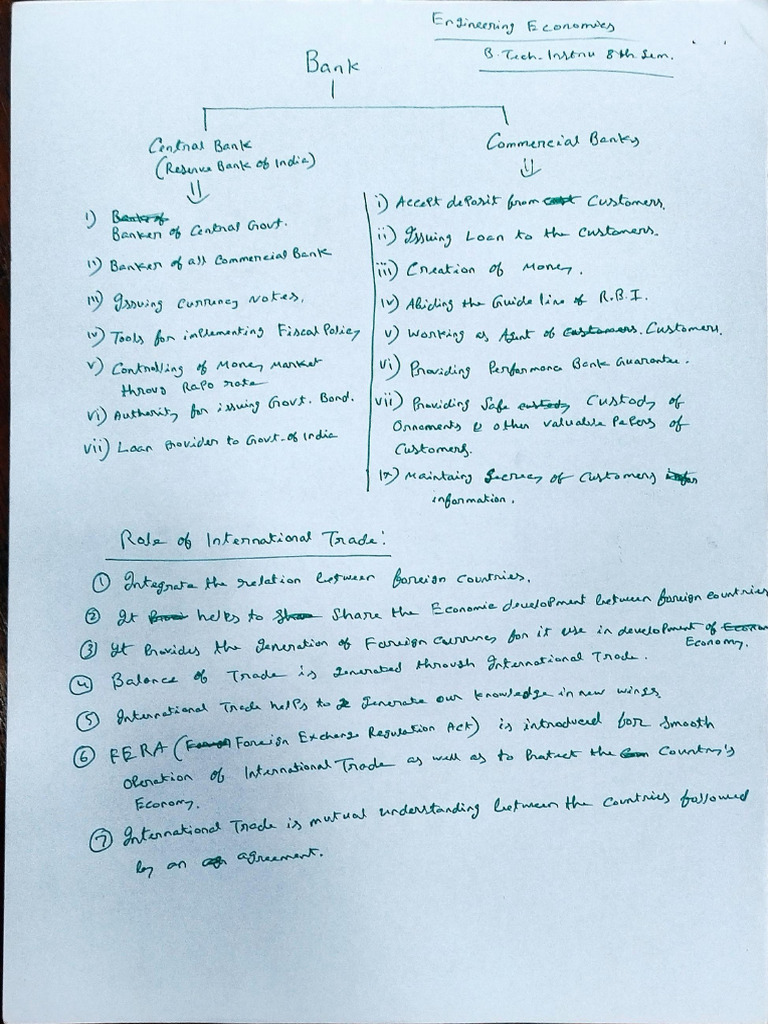 Engineering Economics
B.Tech-Instru 8th Sem.
Bank
Central Bank
(Reserve Bank of India)
i) Banker of Central Govt.
ii) Banker of all Commercial Bank
iii) Issuing currency Notes.
iv) Tools for implementing Fiscal Policy
v) Controlling of Money Market
throus RaPo rate
vi) Authority for issuing Govt. Bond.
vii) Loan provider to Govt. of India
Commercial Banks
i) Accept deposit from Customers.
ii) Issuing Loan to the customers.
iii) Creation of Money.
iv) Abiding the Guide line of R.B.I.
v) Working as Agent of Customers.
vi) Providing Performance Bank Guarantee.
vii) Providing Safe Custody of
Ornoments & other valuable Papers of
Customers.
ix) Maintaing Secrecy of Customers
information.
Role of International Trade:
① Integrate the relation between foreign countries.
② It helps to Share the Economic development between foreign countries
③ It Provides the generation of Foreign currency for it use in development of
Economy.
④ Balance of Trade is generated through International Trade.
⑤ International Trade helps to generate our knowledge in new wings
⑥ FERA (Foreign Exchange Regulation Act) is introduced for smooth
operation of International Trade as well as to Protect the Country's
Economy.
⑦ International Trade is mutual understanding between the countries followed
by an agreement.